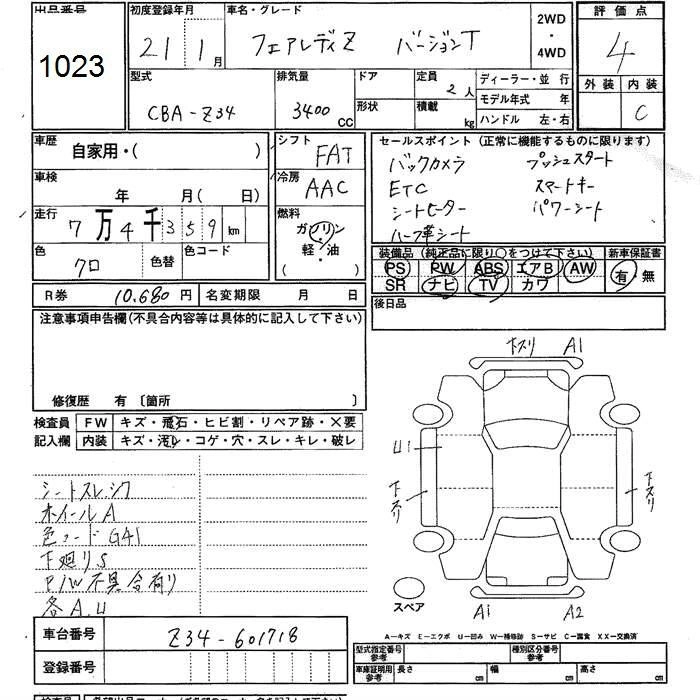 出品番号
1023
初度登録年月
21 1月
車名・グレード
フェアレディZ バージョンT
2WD
・
4WD
評価点
4
外装 内装
C
型式
CBA-Z34
排気量
3400 CC
ドア
形状
定員 2人
積載 kg
ディーラー・並行
モデル年式 年
ハンドル 左・右
車歴
自家用・( )
シフト
FAT
車検
年 月( 日)
冷房
AAC
走行
7万4千359km
燃料
ガソリン
軽・油
( )
色
クロ
色替
色コード
R券 10,680円
名変期限 月 日
セールスポイント (正常に機能するものに限ります)
バックカメラ プッシュスタート
ETC スマートキー
シートヒーター パワーシート
ハーフ革シート
装備品 (純正品に限り○をつけて下さい)
新車保証書
PS PW ABS エアB AW
SR ナビ TV カワ
有 無
後日品
注意事項申告欄(不具合内容等は具体的に記入して下さい)
修復歴 有 〔箇所 〕
検査員
記入欄
FW キズ・飛石・ヒビ割・リペア跡・×要
内装 キズ・汚レ・コゲ・穴・スレ・キレ・破レ
シートスレ,シワ
ホイールA
色コードG41
下廻りS
P/W不具合有り
各A,U
下スリ A1
U1
下スリ
下スリ
スペア
A1 A2
A-キズ E-エクボ U-凹み W-補修跡 S-サビ C-腐食 XX-交換済
車台番号
Z34-601718
登録番号
型式指定番号
参考
種別区分番号
参考
車庫証明用
参考
長さ cm
幅 cm
高さ cm